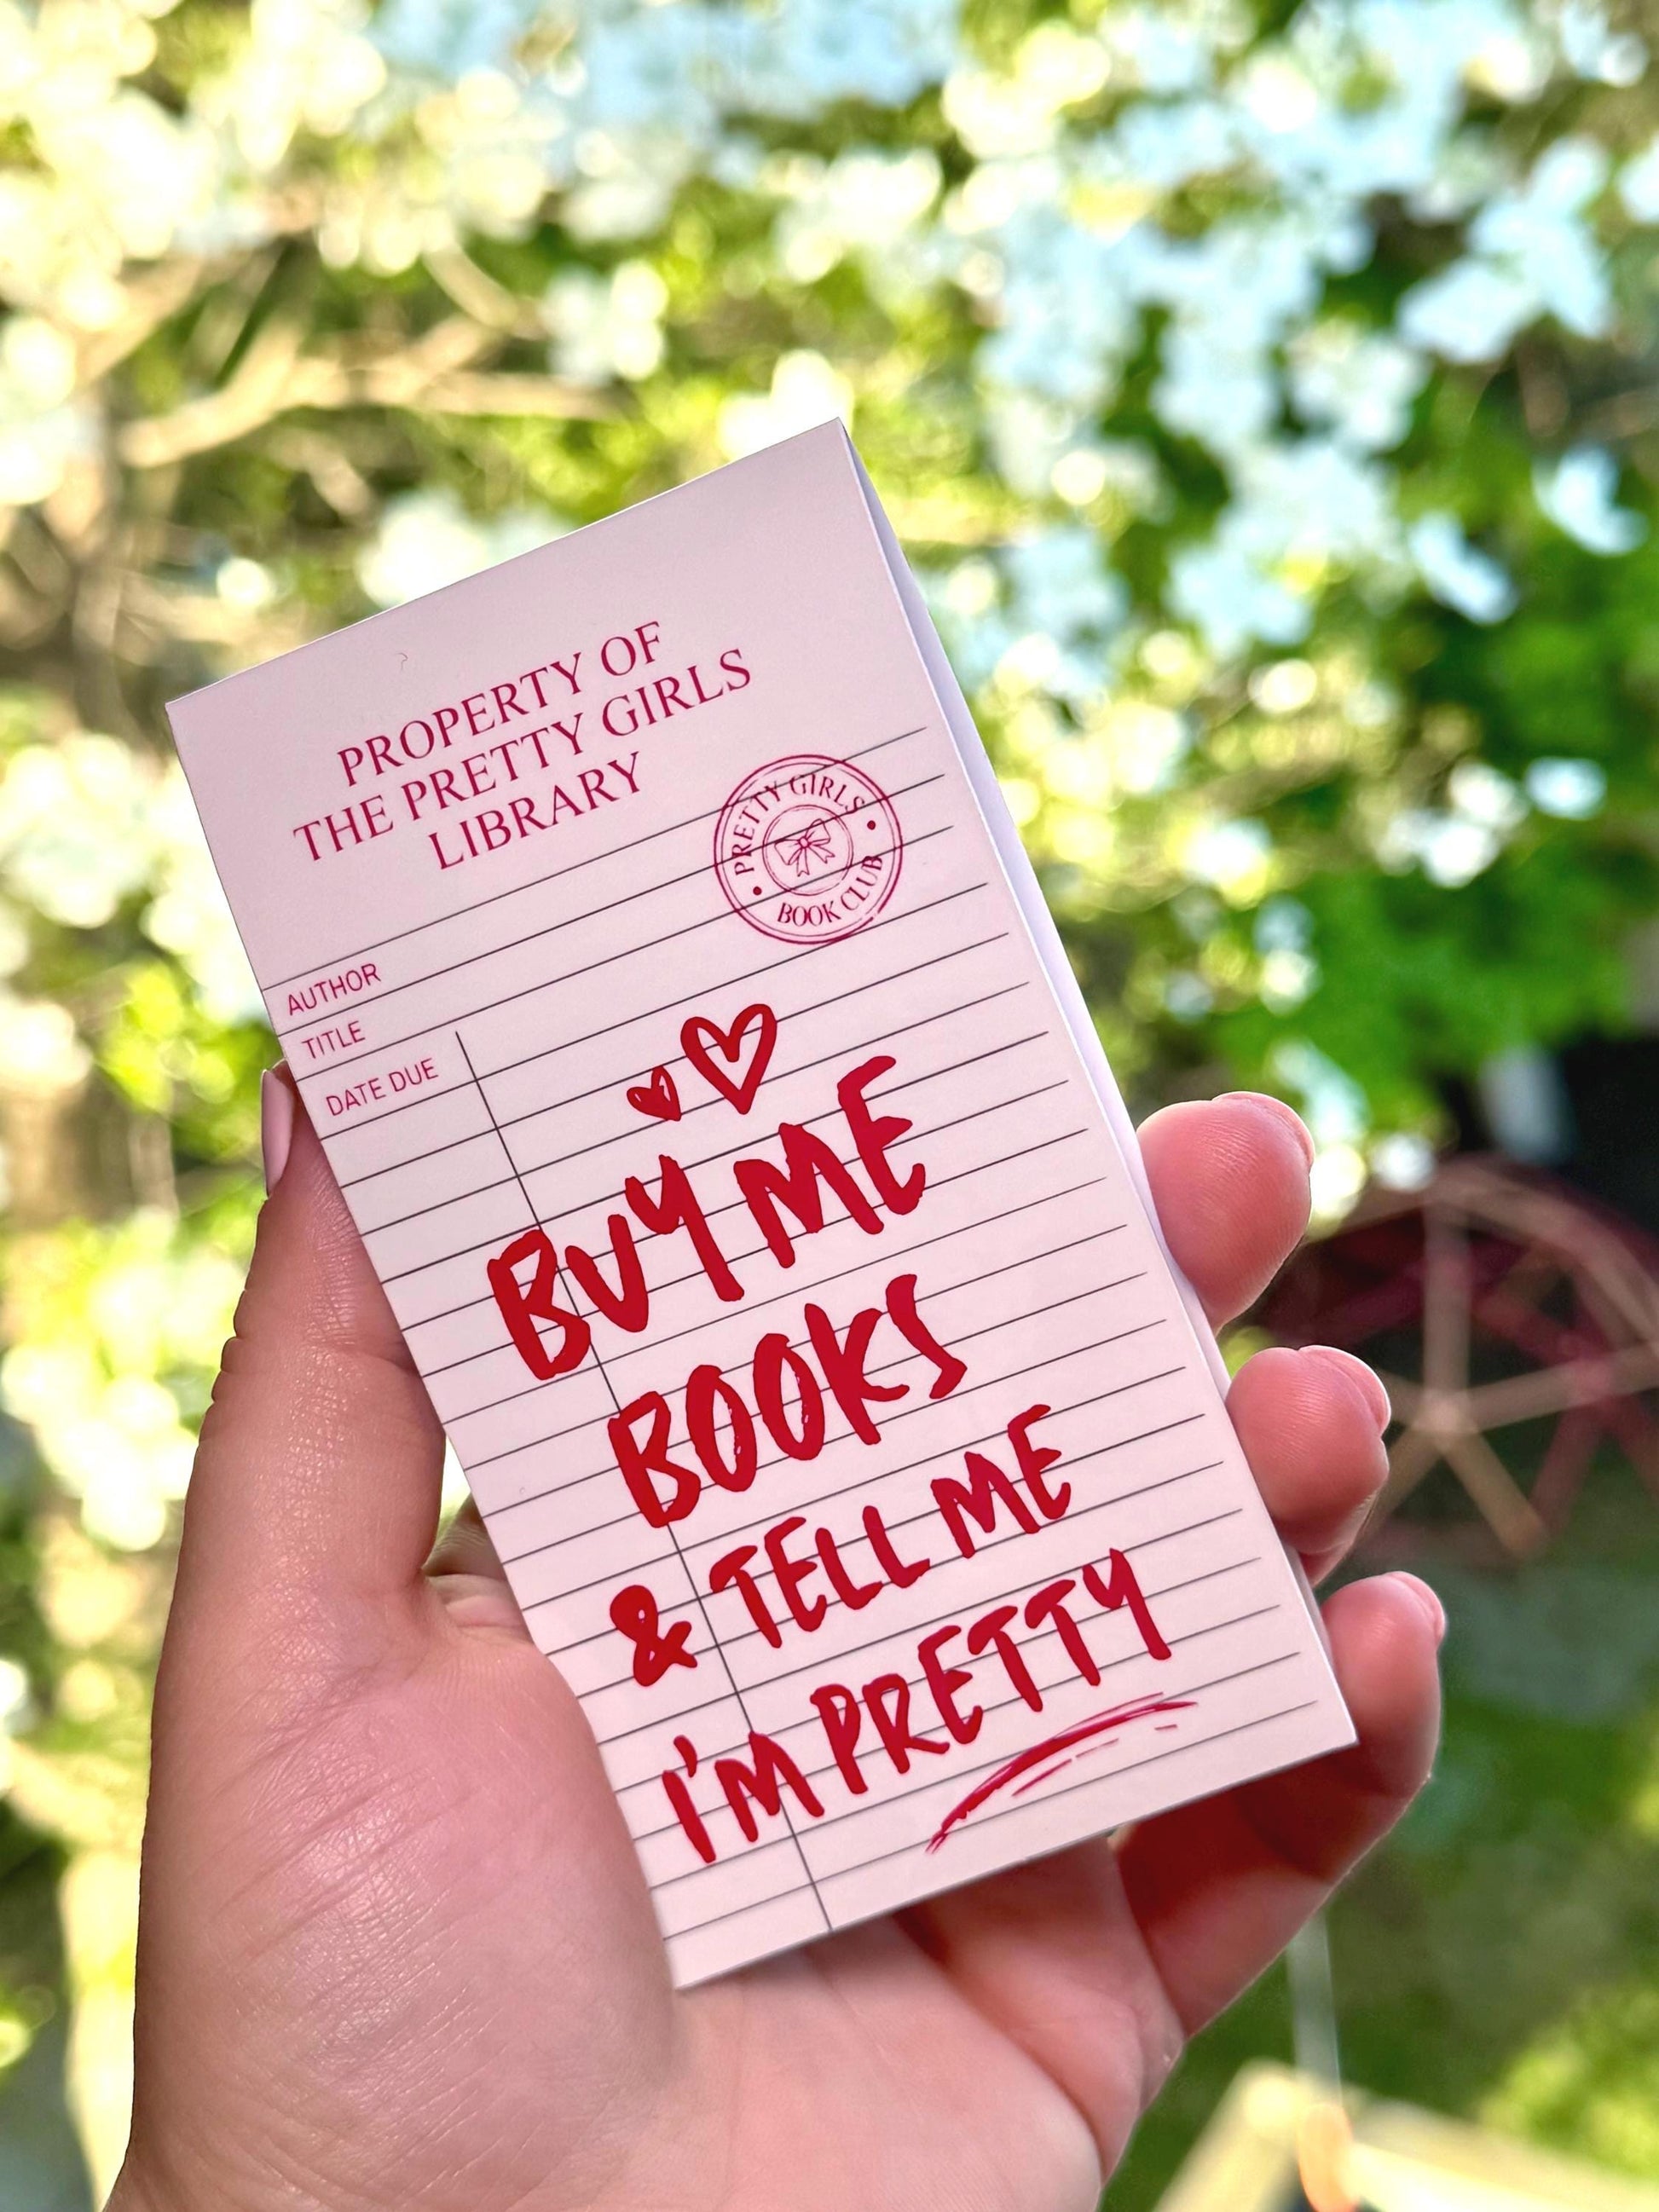 PROPERTY OF
THE PRETTY GIRLS
LIBRARY
PRETTY GIRLS
BOOK CLUB
AUTHOR
TITLE
DATE DUE
BUY ME
BOOKS
& TELL ME
I'M PRETTY